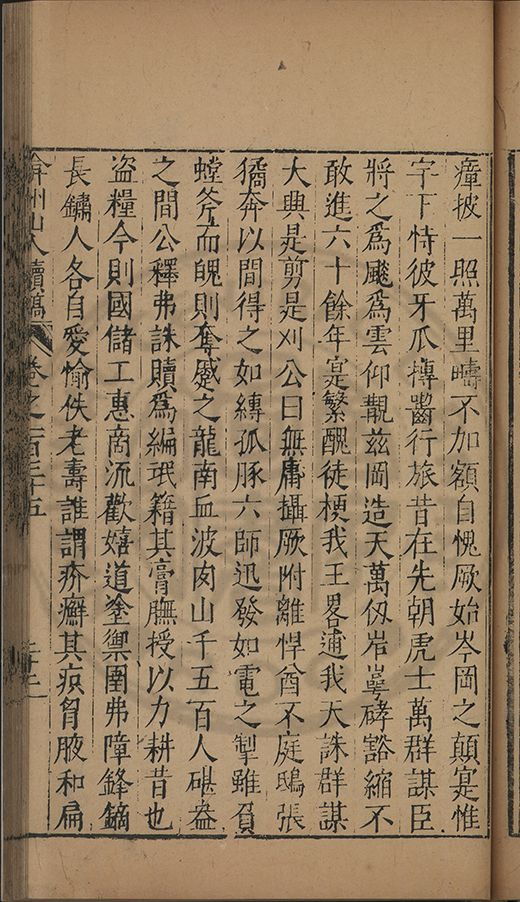 瘴披一照萬里疇不加額自愧厥始岑岡之顛寔惟
字下恃彼牙爪摶齧行旅昔在先朝虎士萬群謀臣
將之為颷為雲仰覩茲岡造天萬仭岝崿硨豁縮不
敢進六十餘年寔繁醜徒梗我王畧逋我大誅群謀
大典是剪是刈公曰無庸攝厥附離悍酋不庭鴟張
獝奔以間得之如縛孤豚六師迅發如電之掣雖負
螳斧而魄則奪蹙之龍南血波肉山千五百人碪盎
之間公釋弗誅贖為編氓籍其膏膴授以力耕昔也
盜糧今則國儲工惠商流歡嬉道塗禦圉弗障鋒鏑
長鏽人各自愛愉佚老壽誰謂疥癬其疢胷腋和扁
弇州山人續稿 卷之一百三十五 二十二